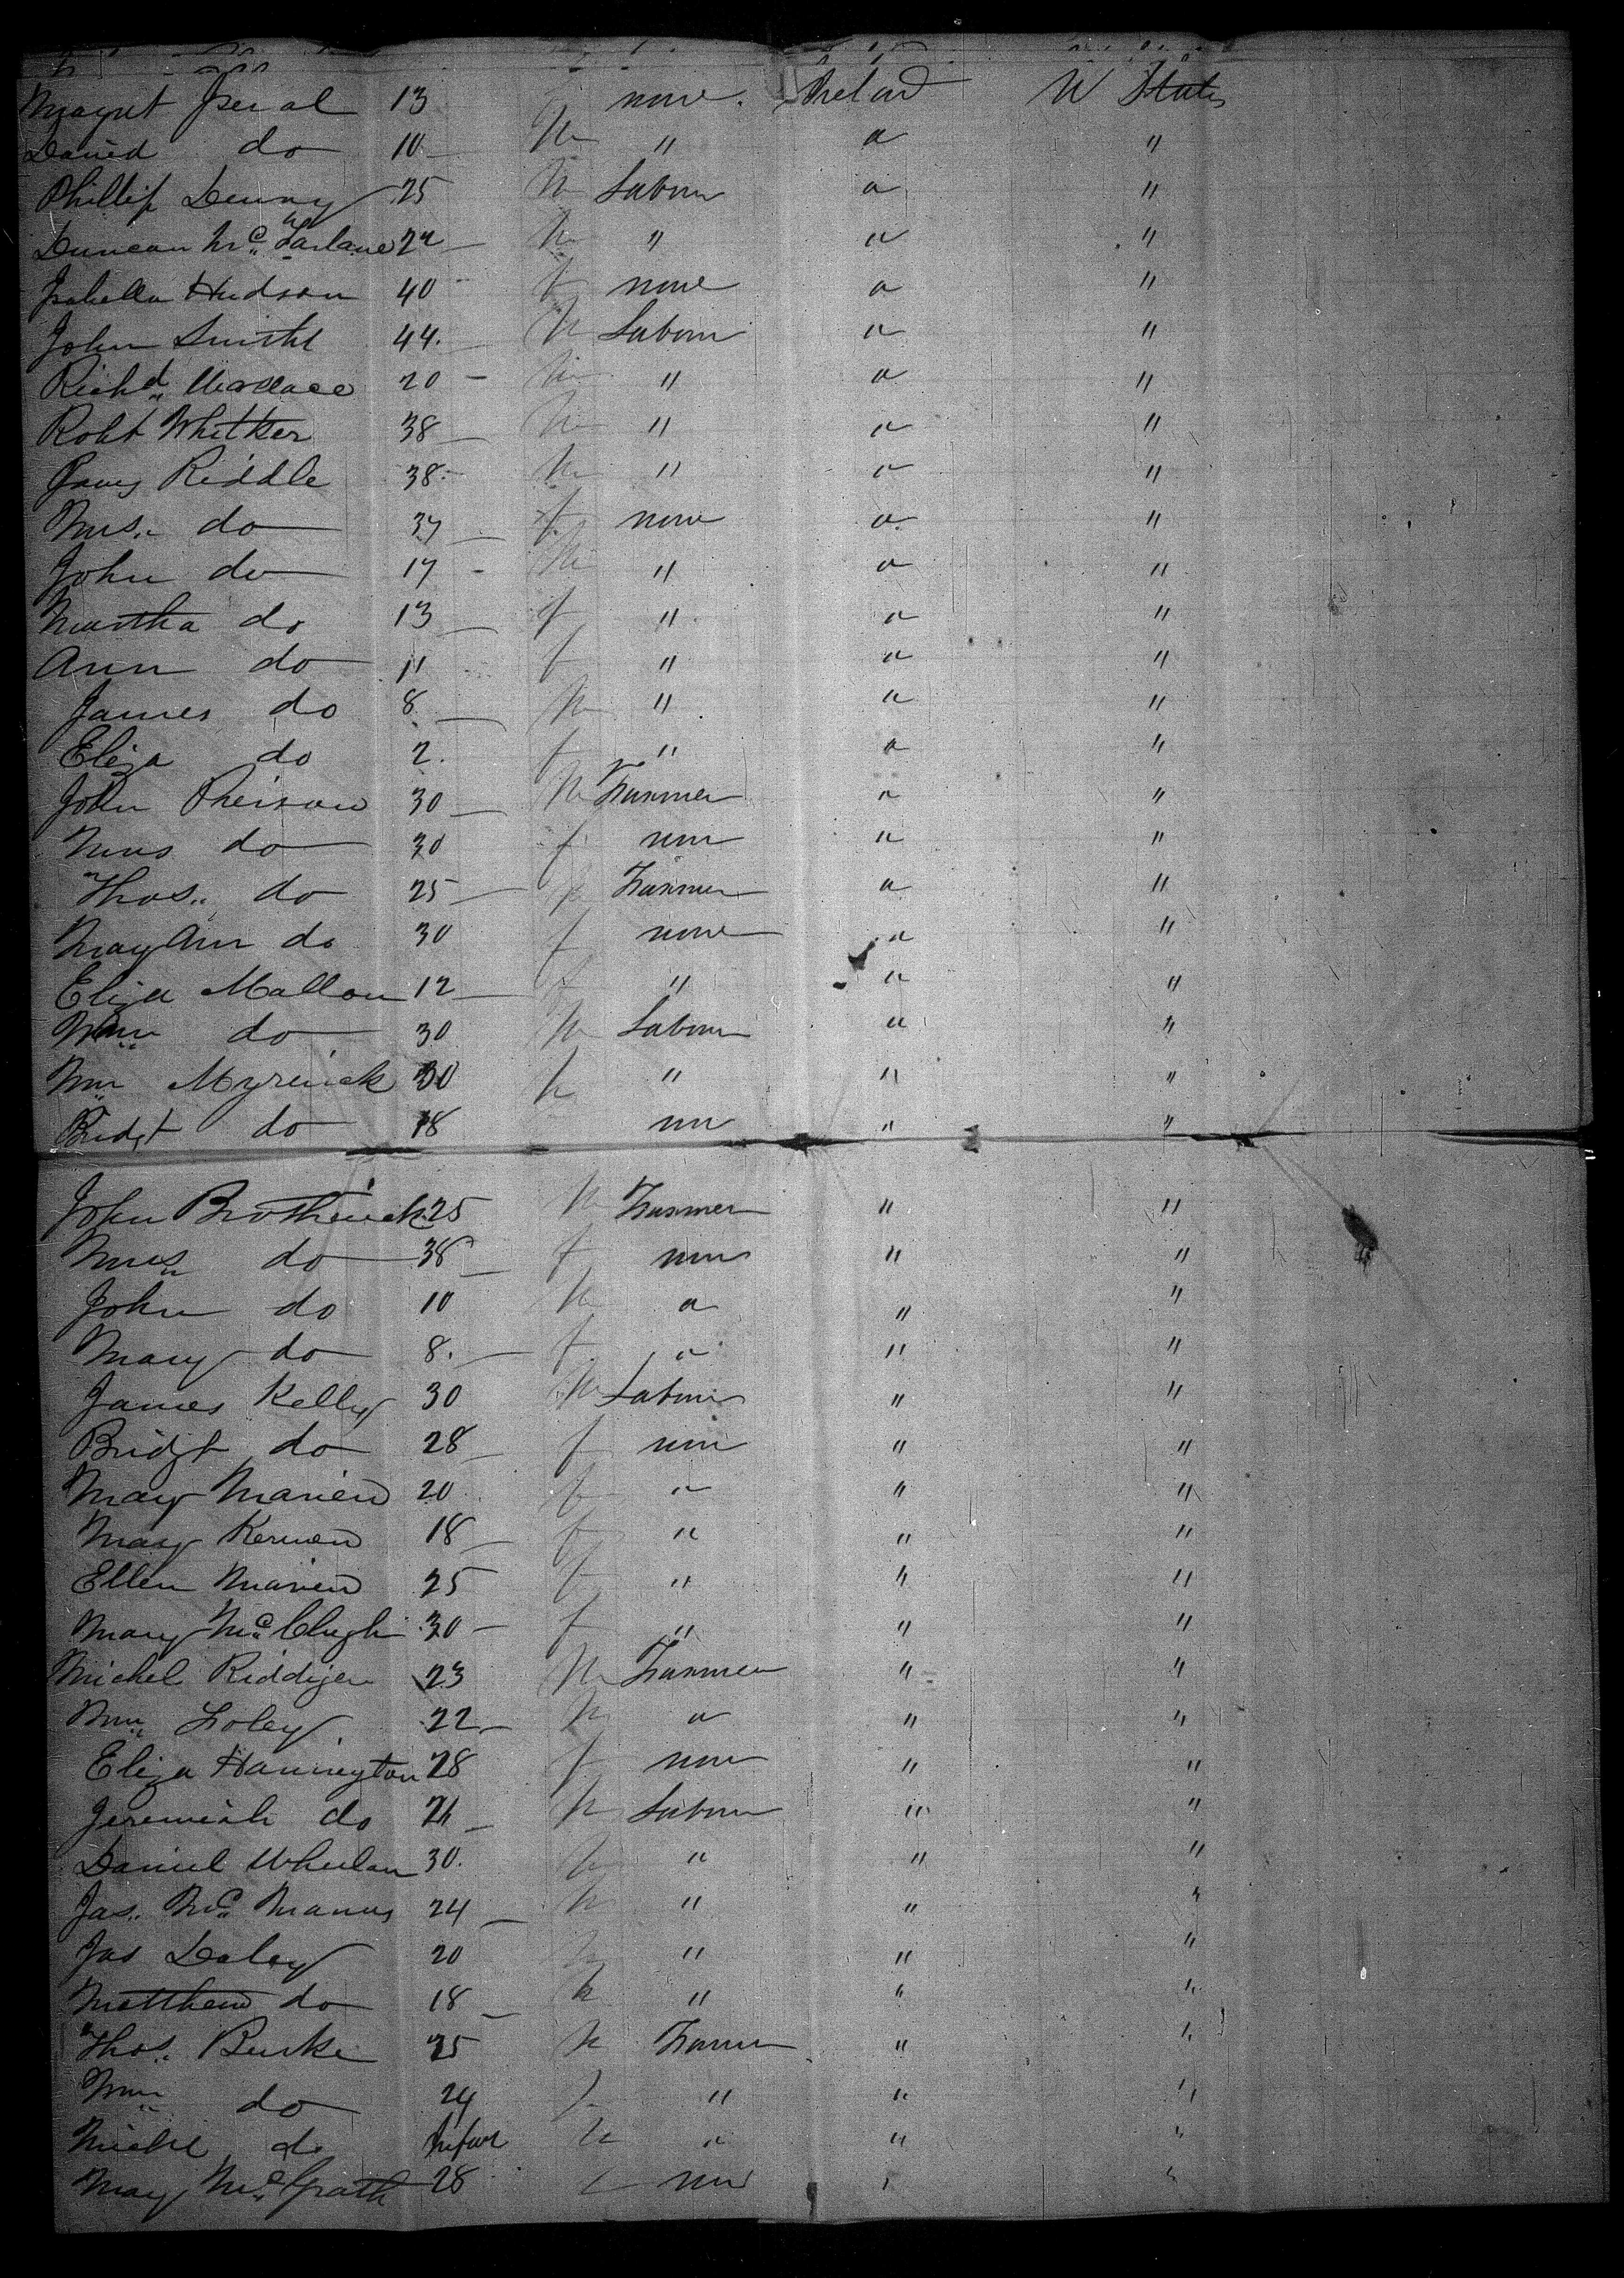 13 f none. Ireland U States
David do 10 M " " "
Phillip Denny 25 M Labour " "
Duncan McFarlane 24 M " " "
Isabella Hudson 40 f none " "
John Smith 44. M Labour " "
Richd Wallace 20 M " " "
Robt Whitker 38 M " " "
James Riddle 38 M " " "
Mrs. do 37 f none " "
John do 17 M " " "
Martha do 13 f " " "
Ann do 11 f " " "
James do 8 M " " "
Eliza do 2. f " " "
John Pheirson 30 M Farmer " "
Mrs do 30 f none " "
Thos. do 25 M Farmer " "
Mary Ann do 30 f none " "
Eliza Mallon 12 f " " "
Wm do 30 M Labour " "
Wm Myrick 30 M " " "
Bridgt do 18 none " "
John Brotherick 25 M Farmer " "
Mrs do 38 f none " "
John do 10 M " " "
Mary do 8. f " " "
James Kelly 30 M Labour " "
Bridgt do 28 f none " "
Mary 20 f " " "
Mary 18 f " " "
Ellen 25 f " " "
Mary 30 f " " "
Michel 23 M Farmer " "
Wm Foley 22 M " " "
Eliza Hannington 28 f none " "
Jeremiah do M Labour " "
Daniel Whelan 30. M " " "
Jas. McManus 24 M " " "
Jas Daley 20 M " " "
Matthew do 18 M " " "
Thos. Burke 25 M Farmer " "
do 24 " " "
Michl do Infant M " " "
May McGrath 28 f none " "